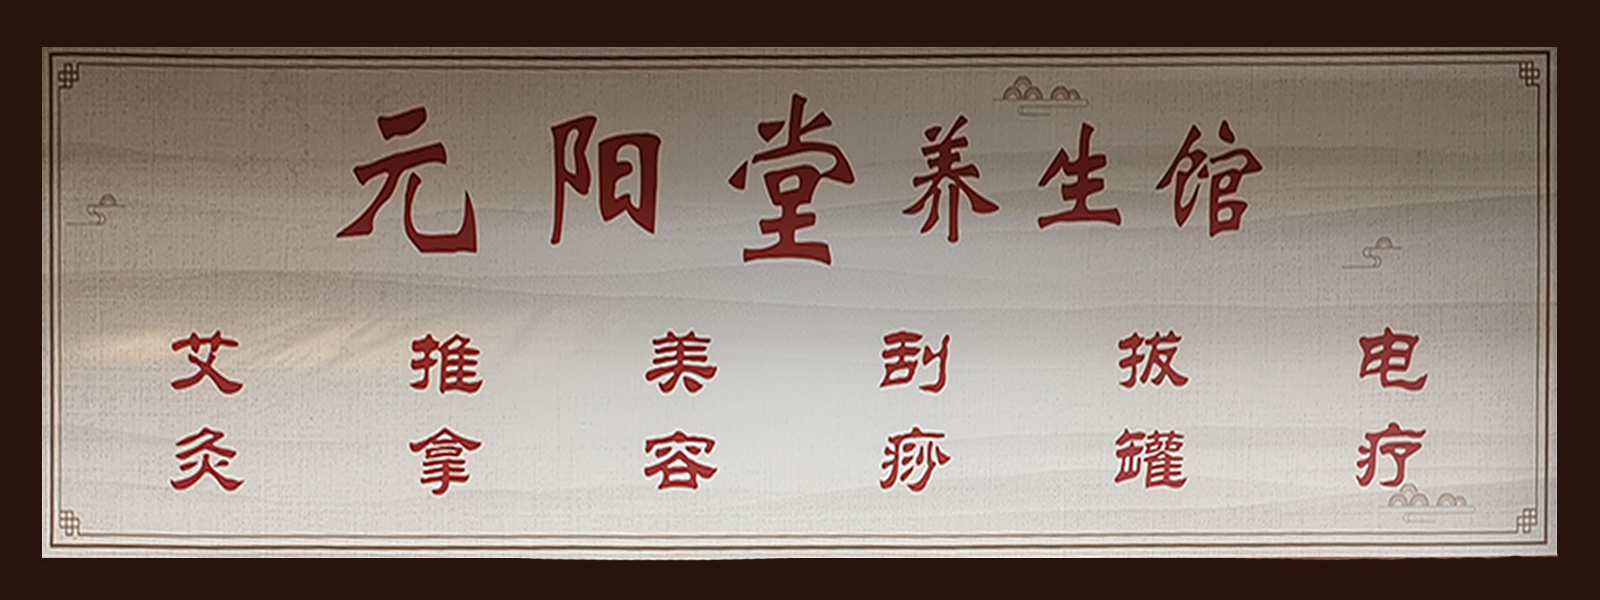 元阳堂养生馆
艾灸 推拿 美容 刮痧 拔罐 电疗